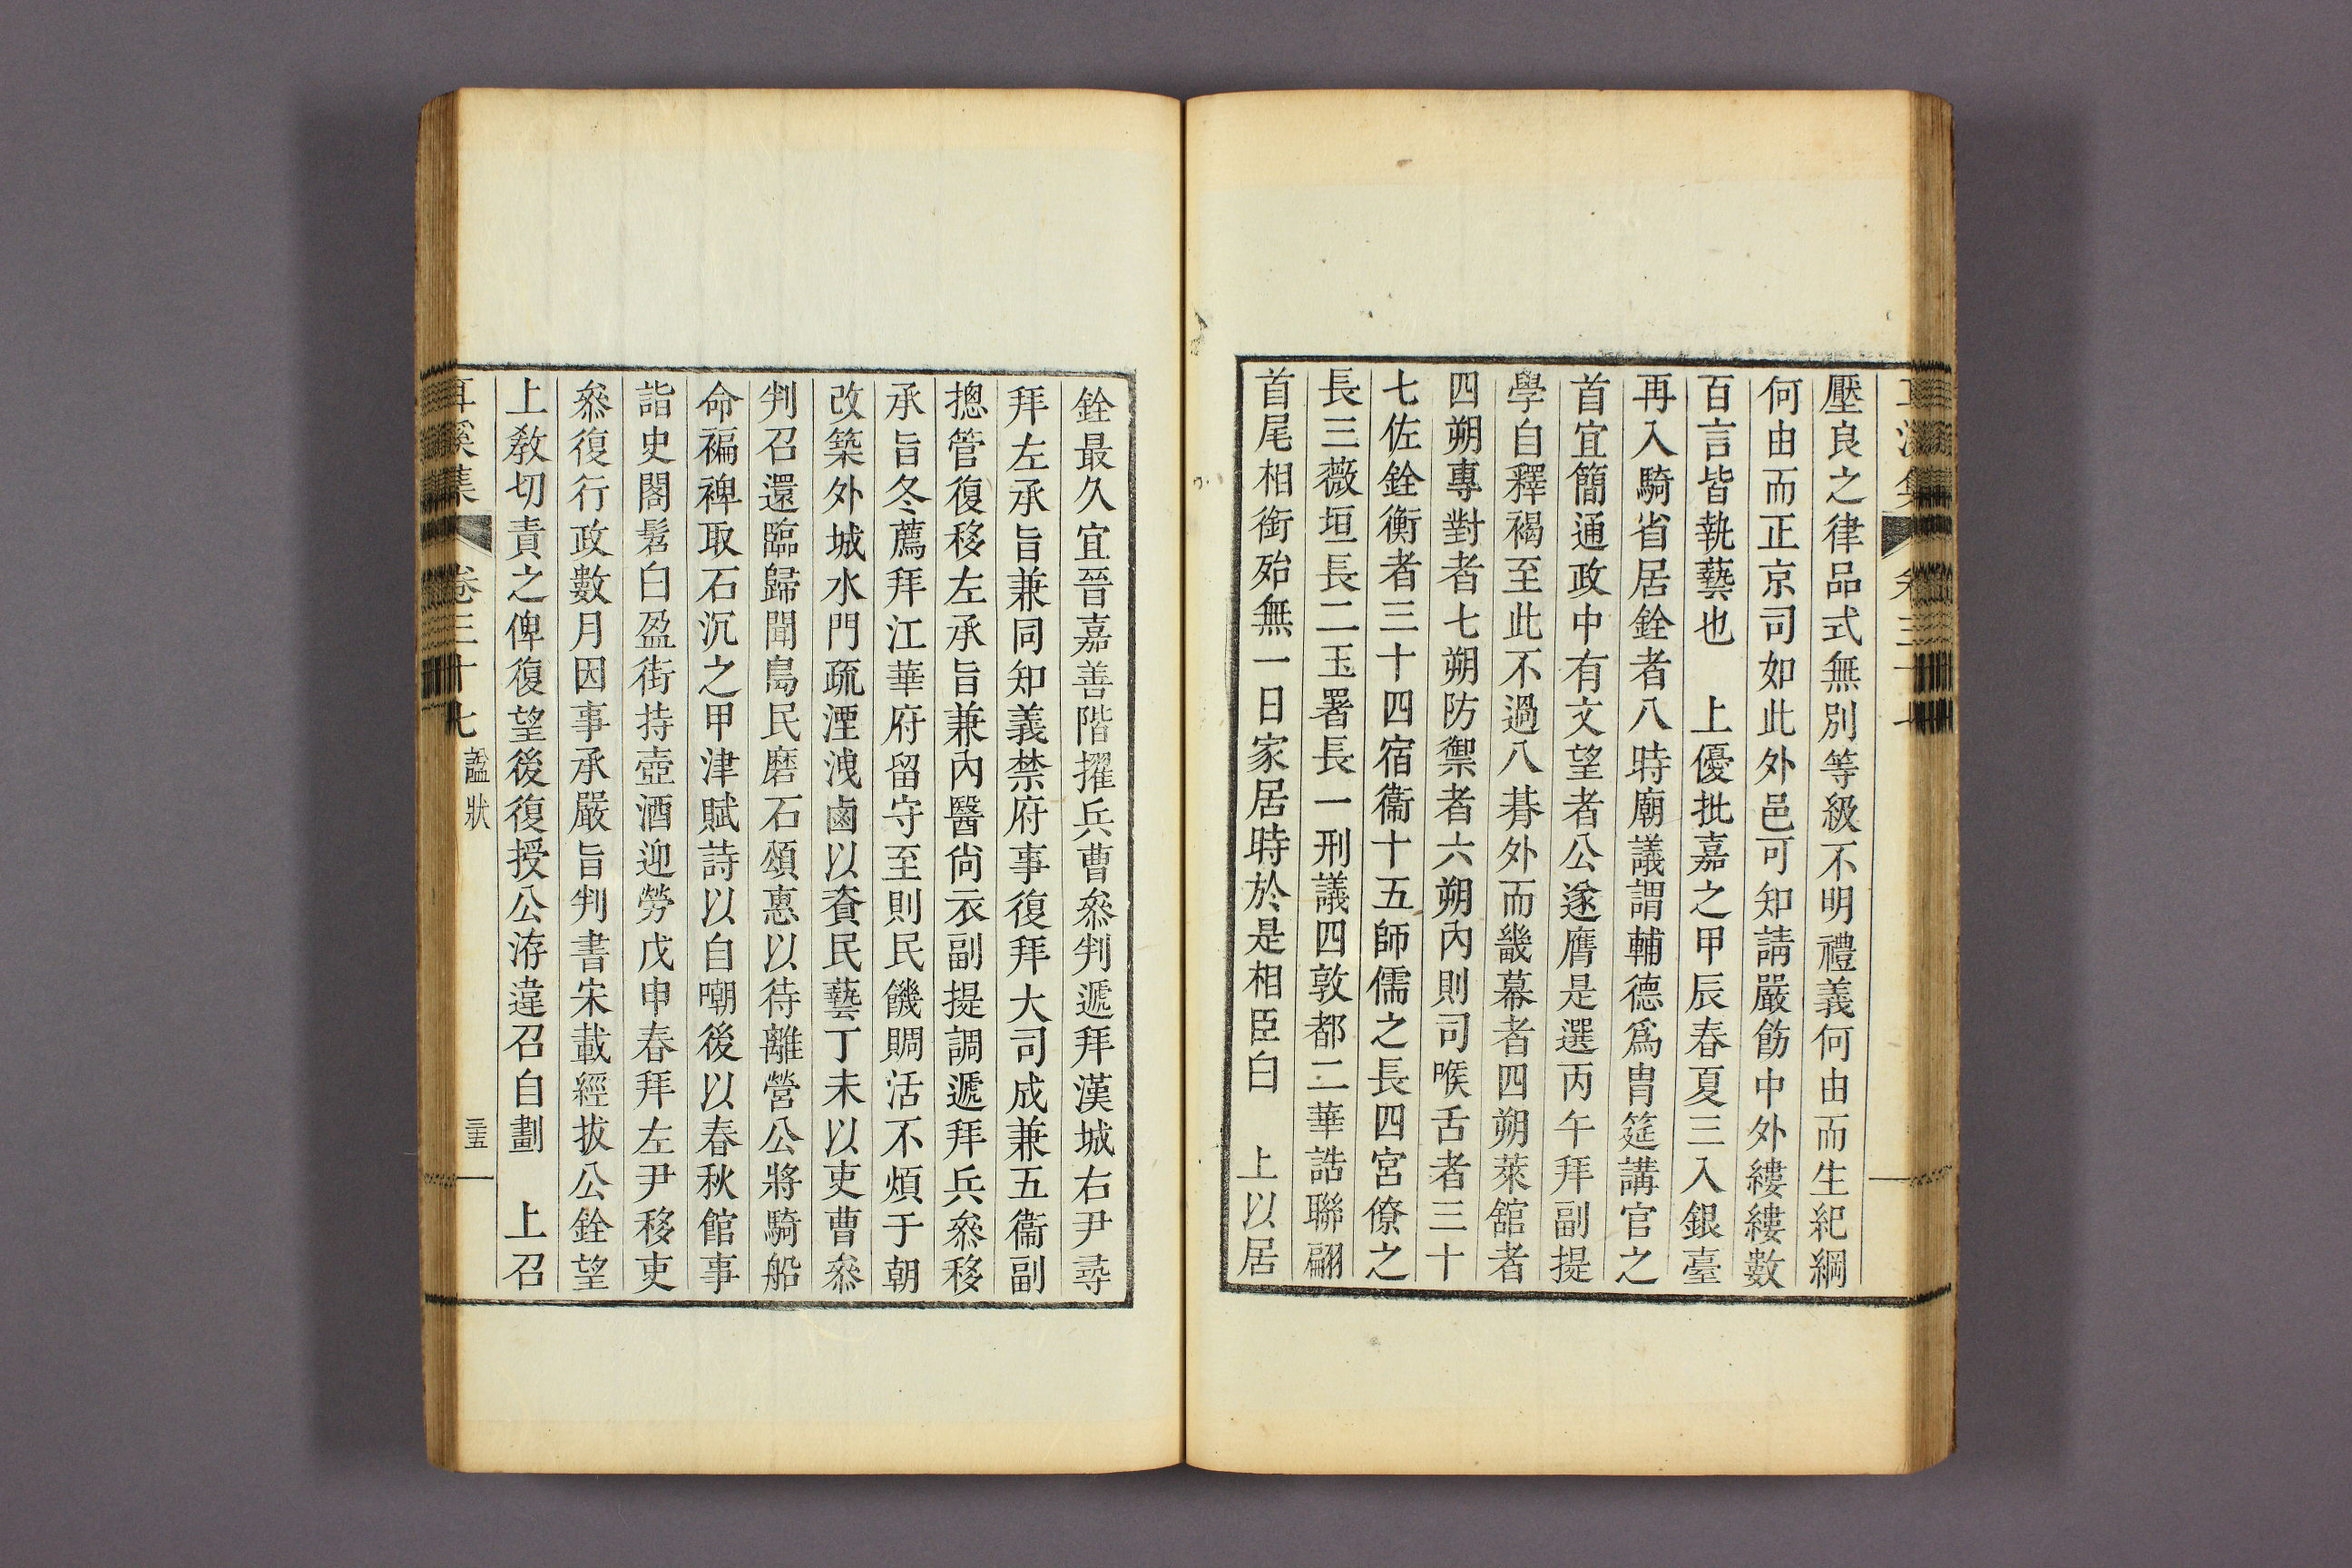 壓良之律品式無別等級不明禮義何由而生紀綱
何由而正京司如此外邑可知請嚴飭中外縷縷數
百言皆執藝也　上優批嘉之甲辰春夏三入銀臺
再入騎省居銓者八時廟議謂輔德爲冑筵講官之
首宜簡通政中有文望者公遂膺是選丙午拜副提
學自釋褐至此不過八朞外而畿幕者四朔萊舘者
四朔專對者七朔防禦者六朔內則司喉舌者三十
七佐銓衡者三十四宿衞十五師儒之長四宮僚之
長三薇垣長二玉署長一刑議四敦都二華誥聯翩
首尾相銜殆無一日家居時於是相臣白　上以居
銓最久宜晉嘉善階擢兵曹叅判遞拜漢城右尹尋
拜左承旨兼同知義禁府事復拜大司成兼五衞副
摠管復移左承旨兼內醫尙衣副提調遞拜兵叅移
承旨冬薦拜江華府留守至則民饑賙活不煩于朝
改築外城水門疏湮洩鹵以資民藝丁未以吏曹叅
判召還臨歸聞島民磨石頌惠以待離營公將騎船
命褊裨取石沉之甲津賦詩以自嘲後以春秋館事
詣史閣髫白盈街持壺酒迎勞戊申春拜左尹移吏
叅復行政數月因事承嚴旨判書宋載經拔公銓望
上敎切責之俾復望後復授公洊違召自劃　上召
耳溪集　卷三十七　諡狀　三五